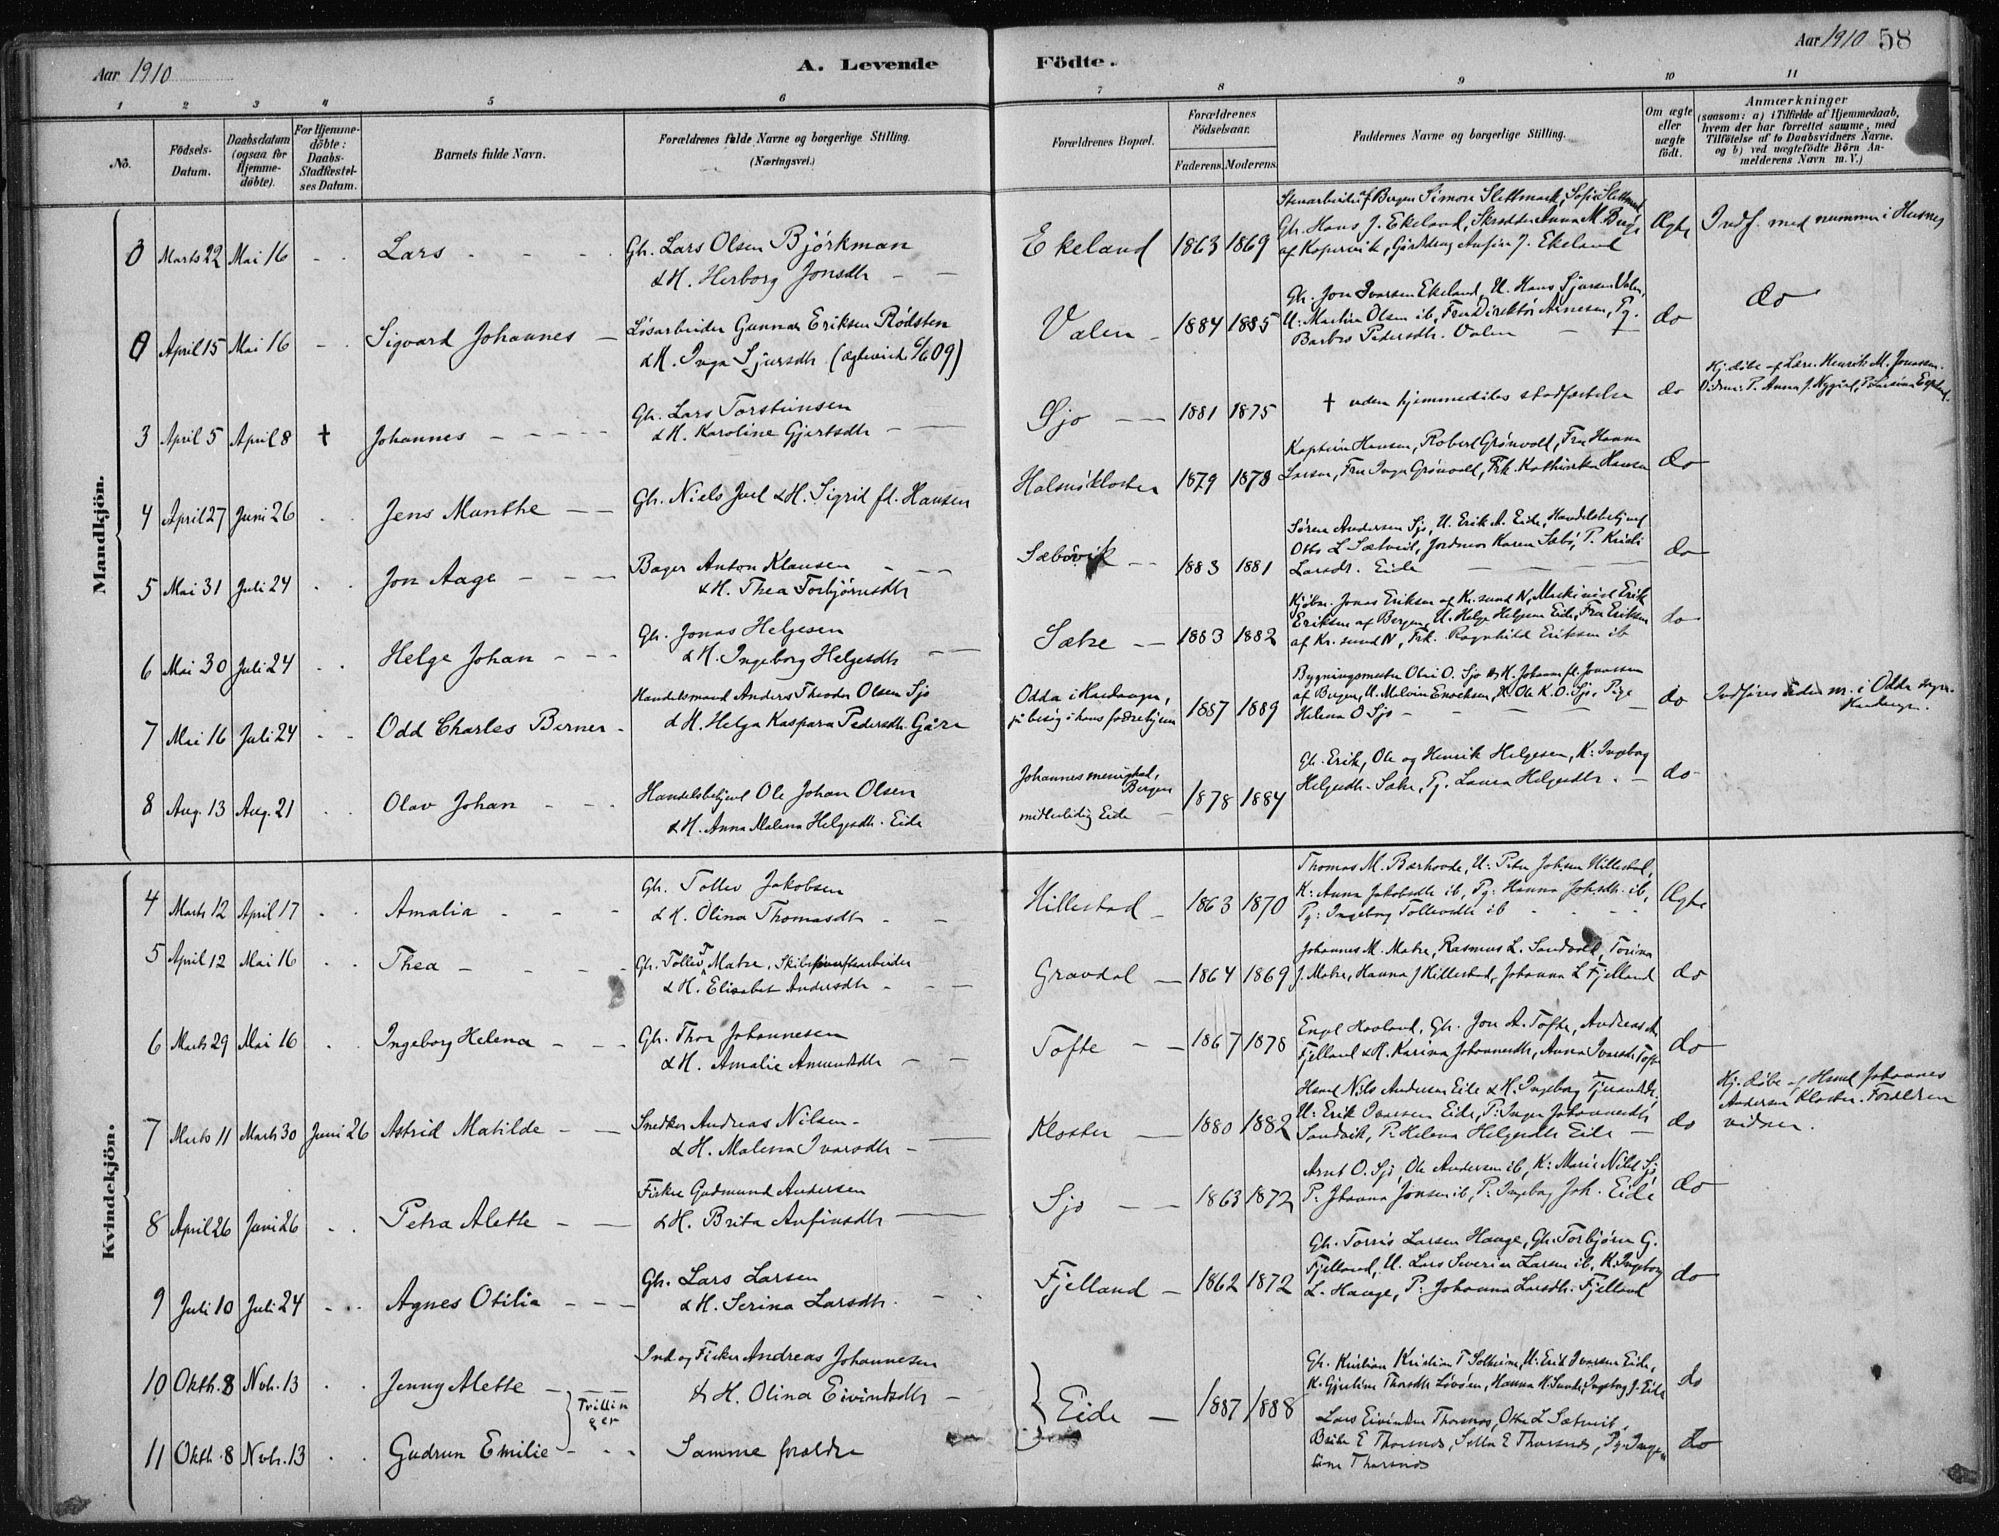 Aar 1910
A. Levende
Födte.
Aar 1910 58
1 2 3 4 5 6 7 8 9 10 11
No.
Födsels-
Datum.
Daabsdatum
(ogsaa for
Hjemme-
döbte).
For Hjemme-
döbte:
Daabs-
Stadfæstel-
ses Datum.
Barnets fulde Navn.
Forældrenes fulde Navne og borgerlige Stilling.
(Næringsvei.)
Forældrenes Bopæl.
Forældrenes
Födselsaar.
Faderens. Moderens.
Faddernes Navne og borgerlige Stilling.
Om ægte
eller
uægte
født.
Anmærkninger
(saasom: a) i Tilfælde af Hjemmedaab,
hvem der har forrettet samme, med
Tilföielse af to Daabsvidners Navne,
og b) ved uægtefödte Börn An-
melderens Navn m. V.)
Mandkjön.
0 Marts 22 Mai 16 Lars
Gh. Lars Olsen Björkman
& H. Herborg Jonsdtr
Ekeland 1863 1869
Stenarbeider af Bergen Simon Slettmark, Sofie Slettmark
Gh. Hans J. Ekeland, Anna M.
af Kopervik, Ekeland
Ægte
Indf. med nummer i Husnes
0 April 15 Mai 16 Sigvard Johannes
Løsarbeider Gunnar Eriksen Rödsten
& H. Inga Sjursdtr
Valen 1884 1885
Gh. Jon Ivarsen Ekeland, U. Hans Sjursen Valen,
U: Martin Olsen ib, Fru Direktör Arnesen, Pg.
Barbro Pedersdtr. Valen
do
do
3 April 5 April 8 † Johannes
Gh. Lars Torsteinsen
& H. Karoline Gjertsdtr
Sjo 1881 1875
† uden hjemmedåbs stadfæstelse
do
Hj. döbt af Lærer Henrik M. Jonassen.
4 April 27 Juni 26 Jens Munthe
Gh. Niels Juel & H. Sigrid fd. Hansen
Halsnökloster 1879 1878
Kaptein Hansen, Robert Grönvold, Fru Hanna
Larsen, Fru Inga Grönvold, Frk. Kathinka Hansen
do
5 Mai 31 Juli 24 Jon Aage
Bager Anton Klausen
& H. Thea Torbjörnsdtr
Sæbövik 1883 1881
Sören Andersen Sjo, U. Erik A. Eide, Handelsbetjent
Otto L Sætveit, Jordmor Karen Sæbö, P. Kristi
Larsdtr. Eide
do
6 Mai 30 Juli 24 Helge Johan
Gh. Jonas Helgesen
& H. Ingeborg Helgesdtr
Sætre 1883 1882
Kjöbm. Jonas Eriksen af Kr. sund N, Maskinist Erik
Eriksen af Bergen, U. Helge Helgesen Eide, Fru Eriksen
af Kr. sund N, Frk. Ragnhild Eriksen ib
do
7 Mai 16 Juli 24 Odd Charles Berner
Handelsmand Anders Theodor Olsen Sjo
& H. Helga Kaspara Pedersdtr. Gåre
Odda i Hardanger,
på besög i hans fædrehjem
1887 1889
Bygningsmester Olai O. Sjo & H. Johanne fd. Jonassen
af Bergen, U. Melvin Enoksen, Ole K. O. Sjo, Pige
Helena O Sjo
do
Indföres under nr. i Odda
Hardanger.
8 Aug. 13 Aug. 21 Olav Johan
Handelsbetjent Ole Johan Olsen
& H. Anna Malena Helgesdtr. Eide
Johannes menighed,
Bergen
midlertidig Eide
1878 1884
Gh. Erik, Ole og Henrik Helgesen, K: Ingeborg
Helgesdtr. Sætre, Pg. Laura Helgesdtr.
do
Kvindekjön.
4 Marts 12 April 17 Amalia
Gh. Tollev Jakobsen
& H. Olina Thomasdtr
Hillestad 1863 1870
Thomas M. Bærhovde, U: Peter Johsen Hillestad,
K: Anna Jakobsdtr ib, Pg: Hanna Johsdtr ib,
Pg: Ingeborg Tollevsdtr ib
Ægte
5 April 12 Mai 16 Thea
Gh. Tollev T Matre, Skibsværftsarbeider
& H. Elisabet Andersdtr
Gravdal 1864 1869
Johannes M. Matre, Rasmus L. Sandvold, Torina
J. Matre, Hanna J Hillestad, Johanna L Fjelland
do
6 Marts 29 Mai 16 Ingeborg Helena
Gh. Thor Johannesen
& H. Amalie Amundsdtr
Tofte 1867 1878
Engel Havland, Gh. Jon A. Tofte, Andreas A.
Fjelland & H. Karina Johannesdtr, Anna Ivarsdtr Tofte
do
7 Marts 11 Marts 30 Juni 26 Astrid Matilde
Snedker Andreas Nilsen
& H. Malena Ivarsdtr
Kloster 1880 1882
Hsmd Nils Andersen Eide & H. Ingeborg
U: Erik Ivarsen Eide, P: Inger Johannesdtr
Sandvik, P: Helena Helgesdtr Eide
do
Hj. döbt af Hsmd Johannes
Andersen Kloster. Forældrene
vidner.
8 April 26 Juni 26 Petra Alette
Fisker Gudmund Andersen
& H. Brita Anfinsdtr
Sjo 1863 1872
Arnt O. Sjo, Ole Andersen ib, K: Marie Nilsd Sjo
P: Johanna Jonsen ib, P: Ingeborg Joh. Eide
do
9 Juli 10 Juli 24 Agnes Otilia
Gh. Lars Larsen
& H. Serina Larsdtr.
Fjelland 1862 1872
Gh. Torris Larsen Hauge, Gh. Torbjörn G.
Fjelland, U. Lars Severin Larsen ib, K. Ingeborg
L. Hauge, P: Johanna Larsdtr. Fjelland
do
10 Oktb. 8 Novb. 13 Jenny Alette
Tvillin
ger
Ind og Fisker Andreas Johannesen
& H. Olina Eivindsdtr
Eide 1887 1888
Gh. Kristian Kristian T Solheim, U: Erik Ivarsen Eide,
K. Gjertine Thorsdtr Lövöen, Hanna K. Sunde, Ingeborg J. Eide
do
11 Oktb. 8 Novb. 13 Gudrun Emilie
Samme forældre
Lars Eivindsen Thorsnes, Otto L Sætveit,
Brite E Thorsnes, Sella E Thorsnes, Pg: Inge-
Thorsnes
do